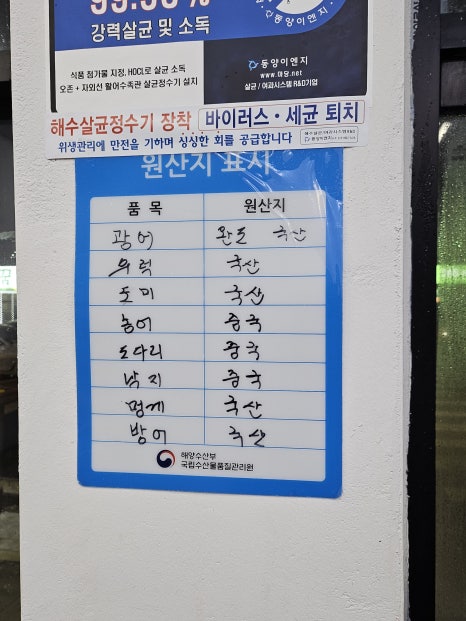 99.98%
강력살균 및 소독
동양이엔지
식품 첨가물 지정, HOCL로 살균 소독
오존 + 자외선 활어수족관 살균정수기 설치
동양이엔지
www.마당.net
살균 / 여과시스템 R&D기업
해수살균정수기 장착 바이러스・세균 퇴치
위생관리에 만전을 기하며 싱싱한 회를 공급합니다
원산지 표시
품 목 원산지
광어 완도 국산
우럭 국산
도미 국산
농어 중국
도다리 중국
낙지 중국
멍게 국산
방어 국산
해양수산부
국립수산물품질관리원